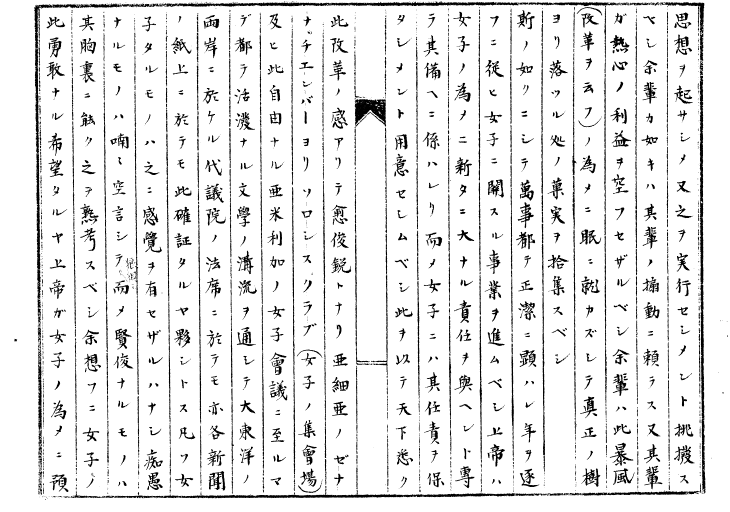 思想ヲ起サシメ又之ヲ実行セシメント挑撥ス
ベシ余輩カ如キハ其輩ノ搧動ニ頼ラス又其輩
ガ熱心ノ利益ヲ空フセザルベシ余輩ハ此暴風
(改革ヲ云フ)ノ為メニ眠ニ就カズシテ真正ノ樹
ヨリ落ツル処ノ菓実ヲ拾集スベシ
斯ノ如クニシテ萬事都テ正潔ニ顕ハレ年ヲ逐
フニ従ヒ女子ニ関スル事業ヲ進ムベシ上帝ハ
女子ノ為メニ新タニ大ナル責任ヲ與ヘント専
ラ其備ヘニ係ハレリ而メ女子ニハ其任責ヲ保
タシメント用意セシムベシ此ヲ以テ天下悉ク
此改革ノ感アリテ愈俊鋭トナリ亜細亜ノゼナ
ナ、チエンバーヨリソロシスクラブ(女子ノ集會場)
及ヒ此自由ナル亜米利加ノ女子會議ニ至ルマ
デ都テ活溌ナル文學ノ溝流ヲ通シテ大東洋ノ
両岸ニ於ケル代議院ノ法席ニ於テモ亦各新聞
ノ紙上ニ於テモ此確証タルヤ夥シトス凡ソ女
子タルモノハ之ニ感覚ヲ有セザルハナシ痴愚
ナルモノハ喃々空言シテ而メ賢俊ナルモノハ
其胸裏ニ能ク之ヲ熟考スベシ余想フニ女子ノ
此勇敢ナル希望タルヤ上帝ガ女子ノ為メニ預